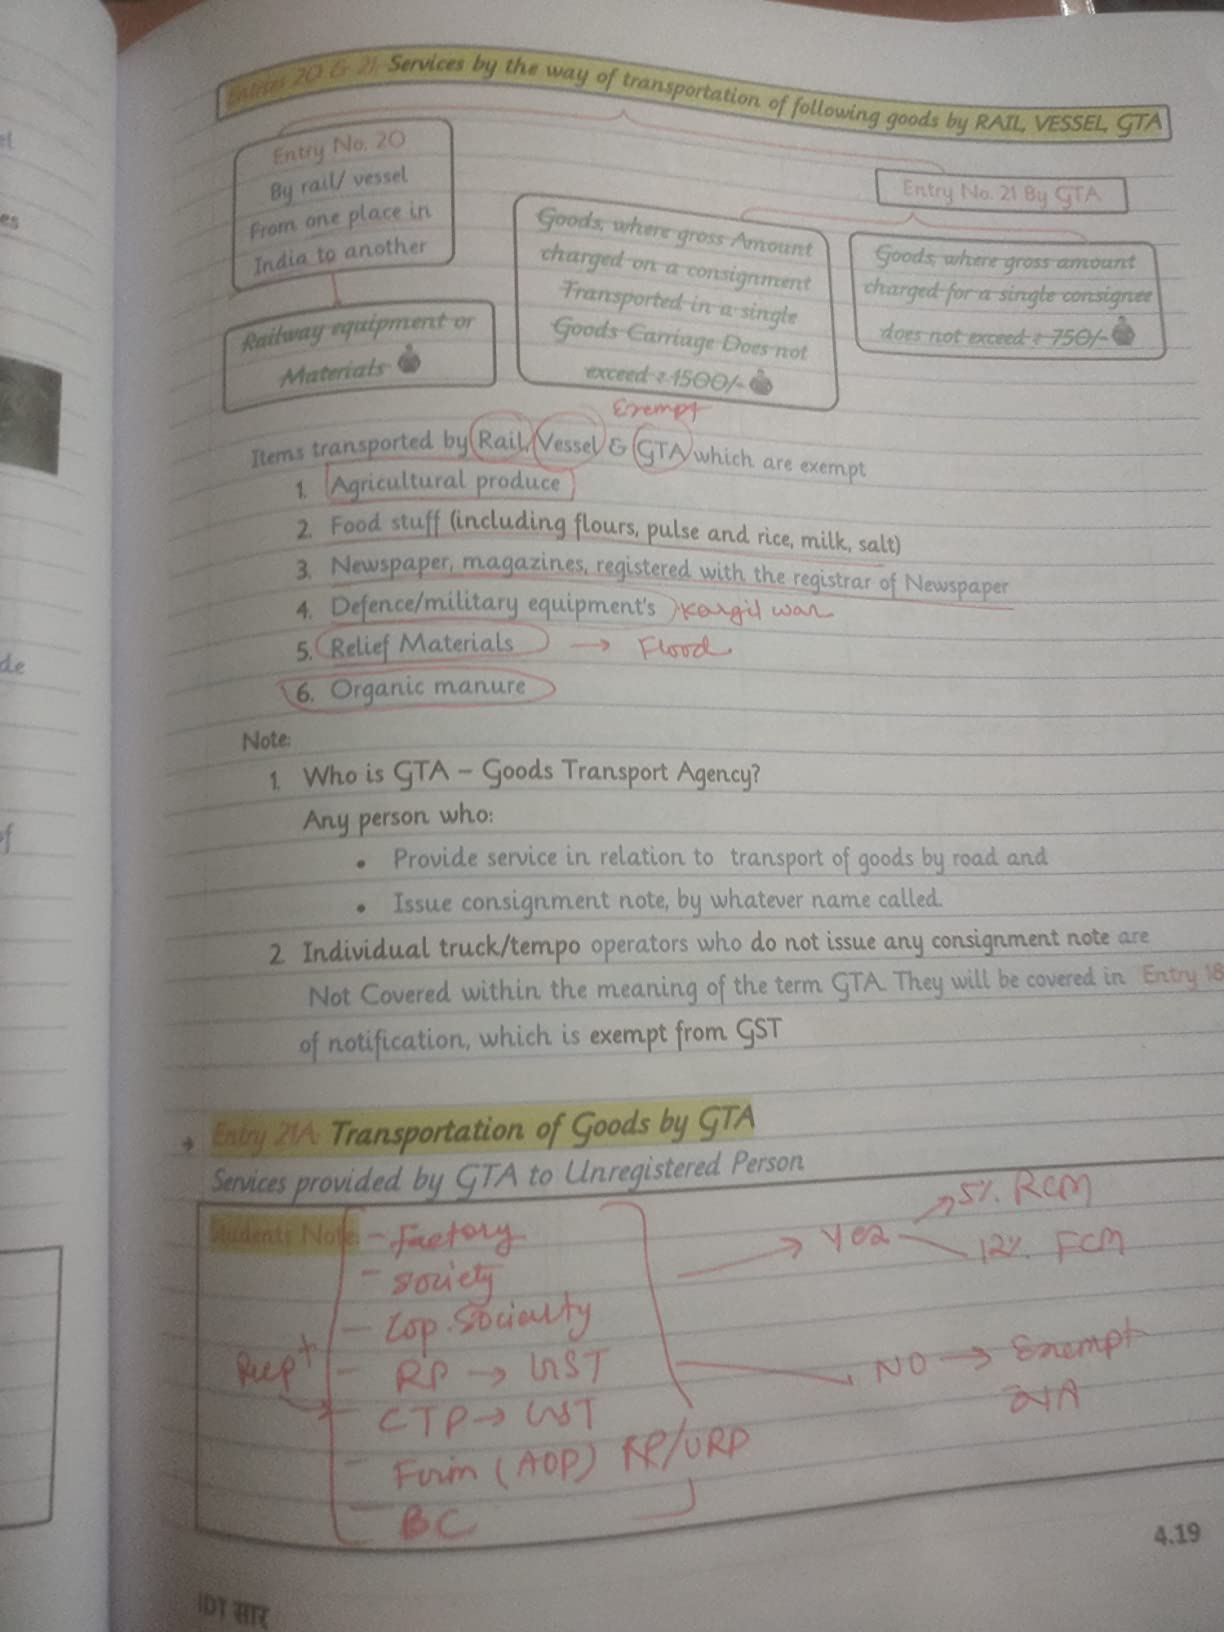 Entries 20 & 21: Services by the way of transportation of following goods by RAIL, VESSEL, GTA
Entry No. 20
By rail/ vessel
From one place in
India to another
Railway equipment or
Materials
Entry No. 21 By GTA
Goods, where gross Amount
charged on a consignment
Transported in a single
Goods Carriage Does not
exceed ₹ 1500/-
Goods, where gross amount
charged for a single consignee
does not exceed ₹ 750/-
Exempt
Items transported by Rail, Vessel & GTA which are exempt
1. Agricultural produce
2. Food stuff (including flours, pulse and rice, milk, salt)
3. Newspaper, magazines, registered with the registrar of Newspaper
4. Defence/military equipment's Kargil war
5. Relief Materials → Flood
6. Organic manure
Note:
1. Who is GTA – Goods Transport Agency?
Any person who:
• Provide service in relation to transport of goods by road and
• Issue consignment note, by whatever name called.
2. Individual truck/tempo operators who do not issue any consignment note are
Not Covered within the meaning of the term GTA. They will be covered in Entry 18
of notification, which is exempt from GST
→ Entry 21A: Transportation of Goods by GTA
Services provided by GTA to Unregistered Person
Students Note:
- Factory
- Society
- Cop. Society
- RP → GST
CTP → GST
- Firm (AOP) RP/URP
- BC
Recpt
→ Yes
→ 5% RCM
12% FCM
NO → Exempt
21A
4.19
IDT सार